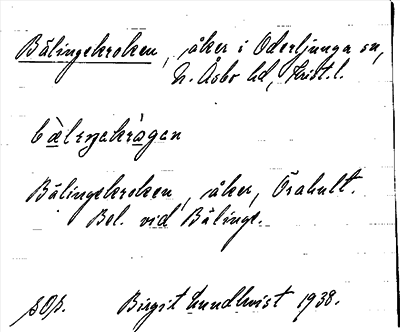 Bälingekroken, åker i Oderljunga sn,
N. Åsbo hd, Krist. l.
Bälingekroken, åker, Örahult.
Bel. vid Bälinge.
Birgit Lundkvist 1938.